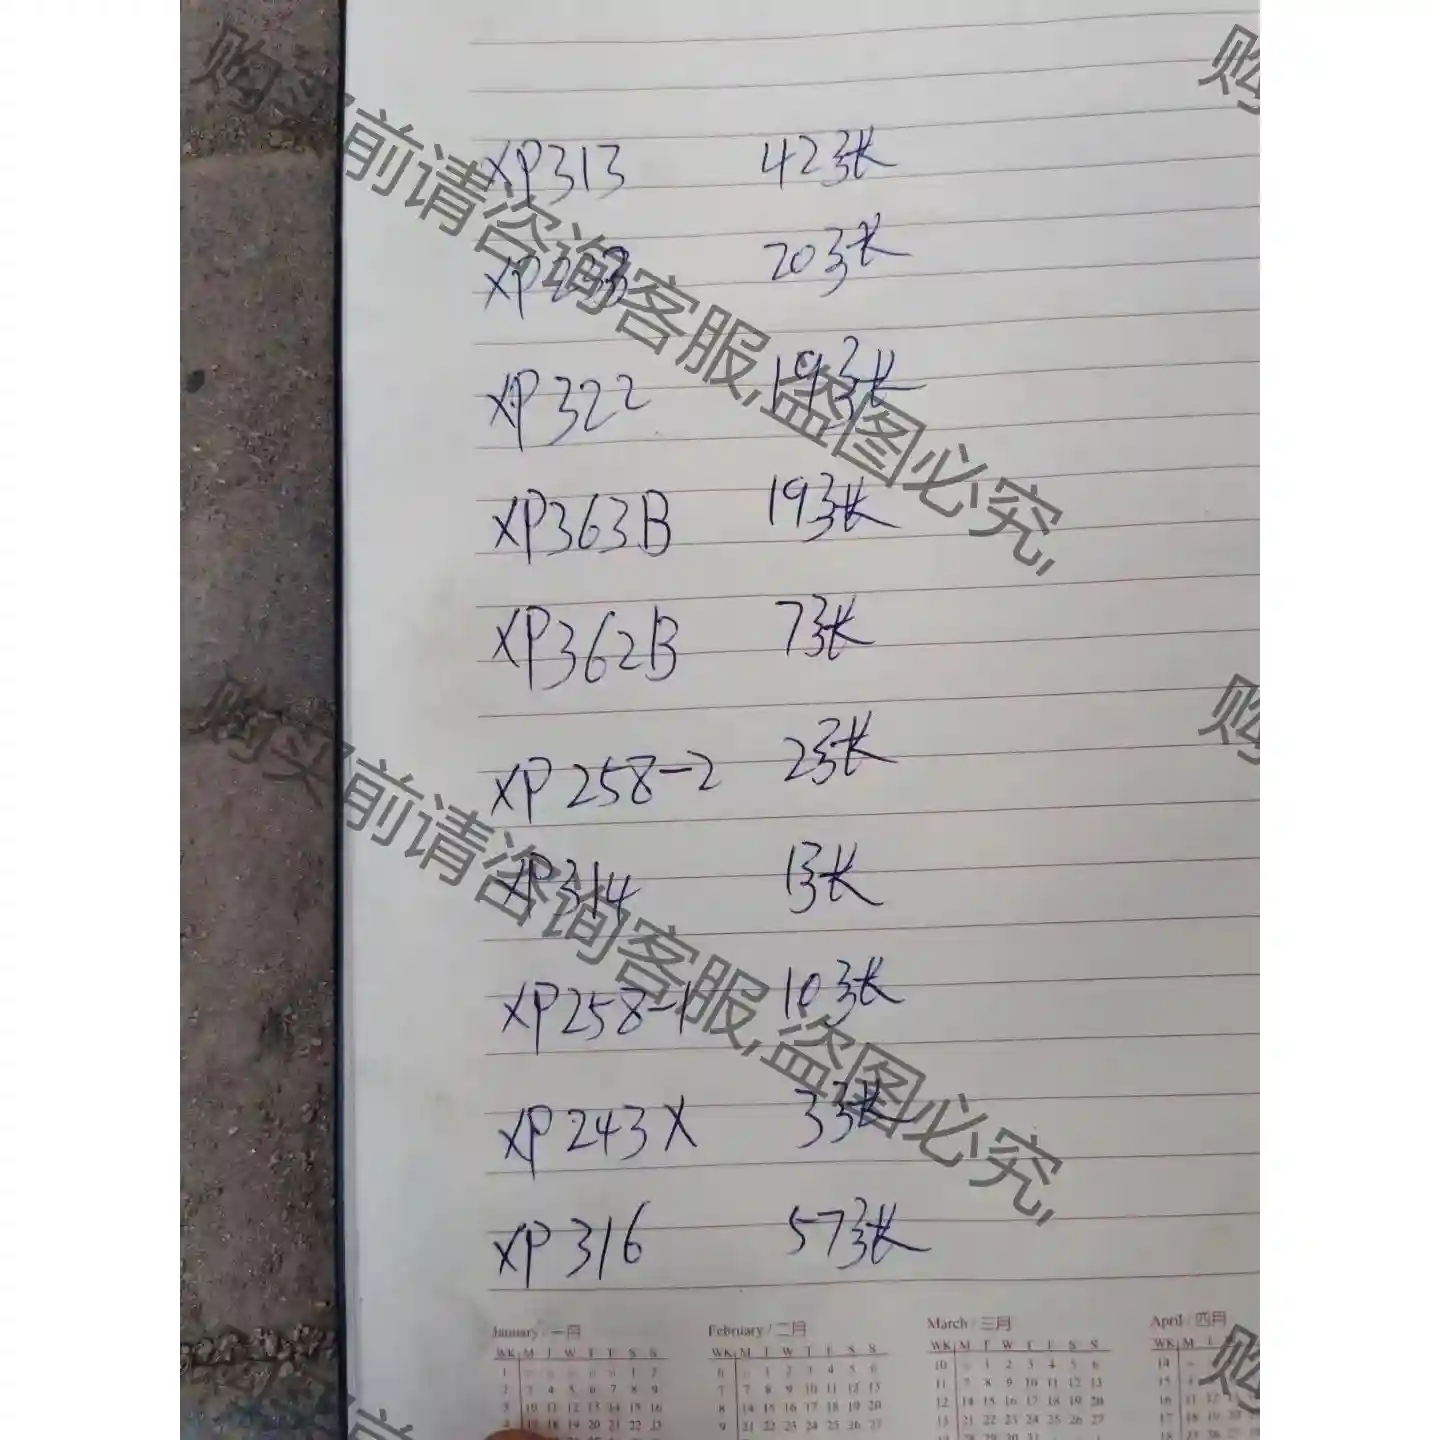 XP313 42张
XP 20张
XP322 19张
XP363B 19张
XP362B 7张
XP258-2 2张
XP314 1张
XP258-1 10张
XP243X 3张
XP316 57张
购买前请咨询客服,盗图必究,
购买前请咨询客服,盗图必究,
购
购
购
January / 一月 February / 二月 March / 三月 April / 四月
WK M T W T F S S WK M T W T F S S WK M T W T F S S WK M T